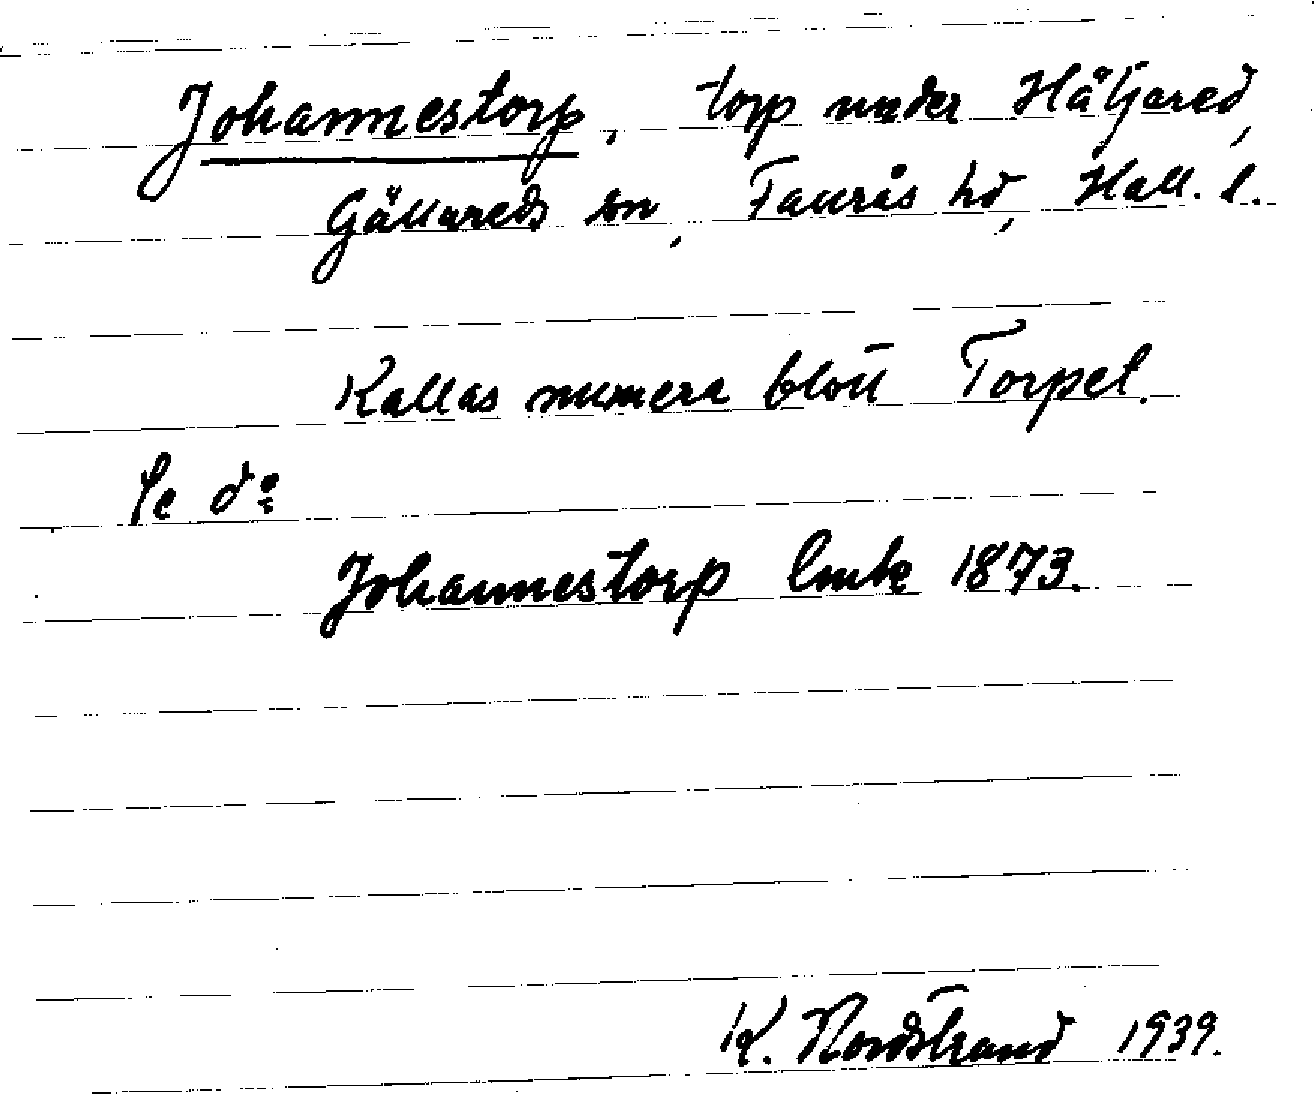 Johannestorp, torp under Håljared,
Gällareds sn, Faurås hd, Hall. l.
Kallas numera blott Torpet.
Se do
Johannestorp Emtk 1873.
K. Nordstrand 1939.